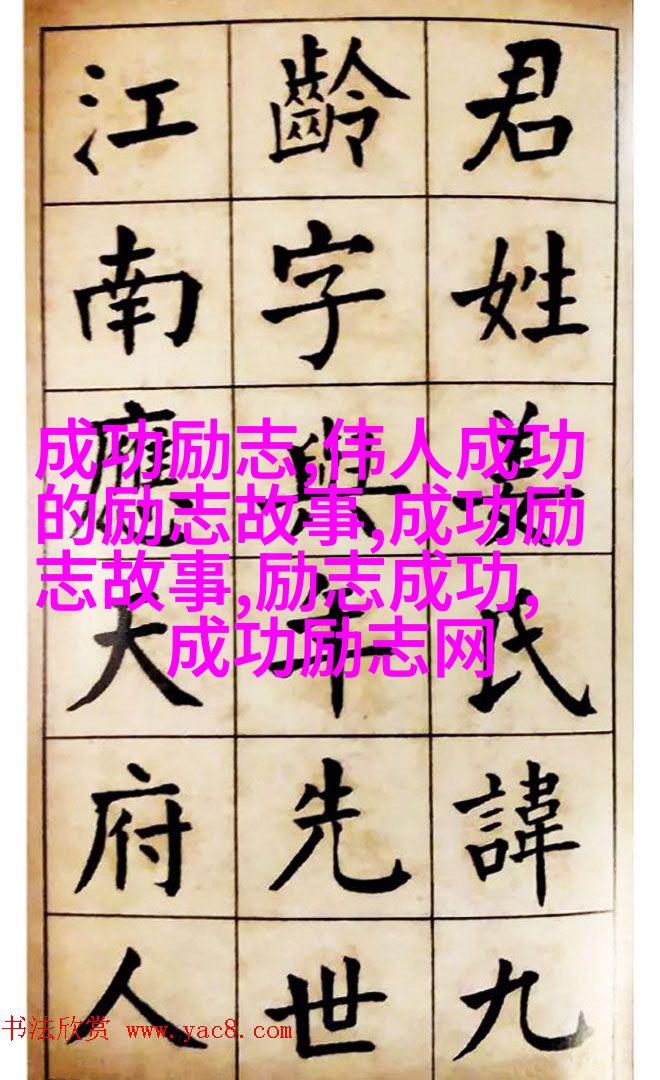 君姓氏諱九
齡字與年先世
江南應天府人
成功励志,伟人成功
的励志故事,成功励
志故事,励志成功,
成功励志网
书法欣赏 www.yac8.com